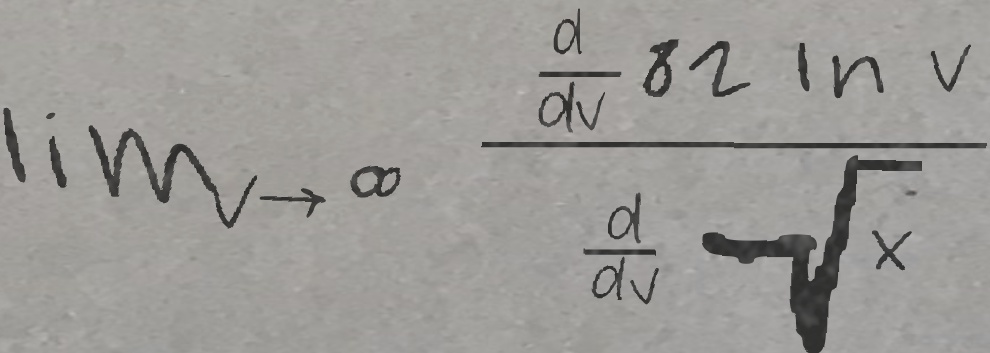 lim_{v→∞} \frac{\frac{d}{dv} 82 ln v}{\frac{d}{dv} -\sqrt{x}}